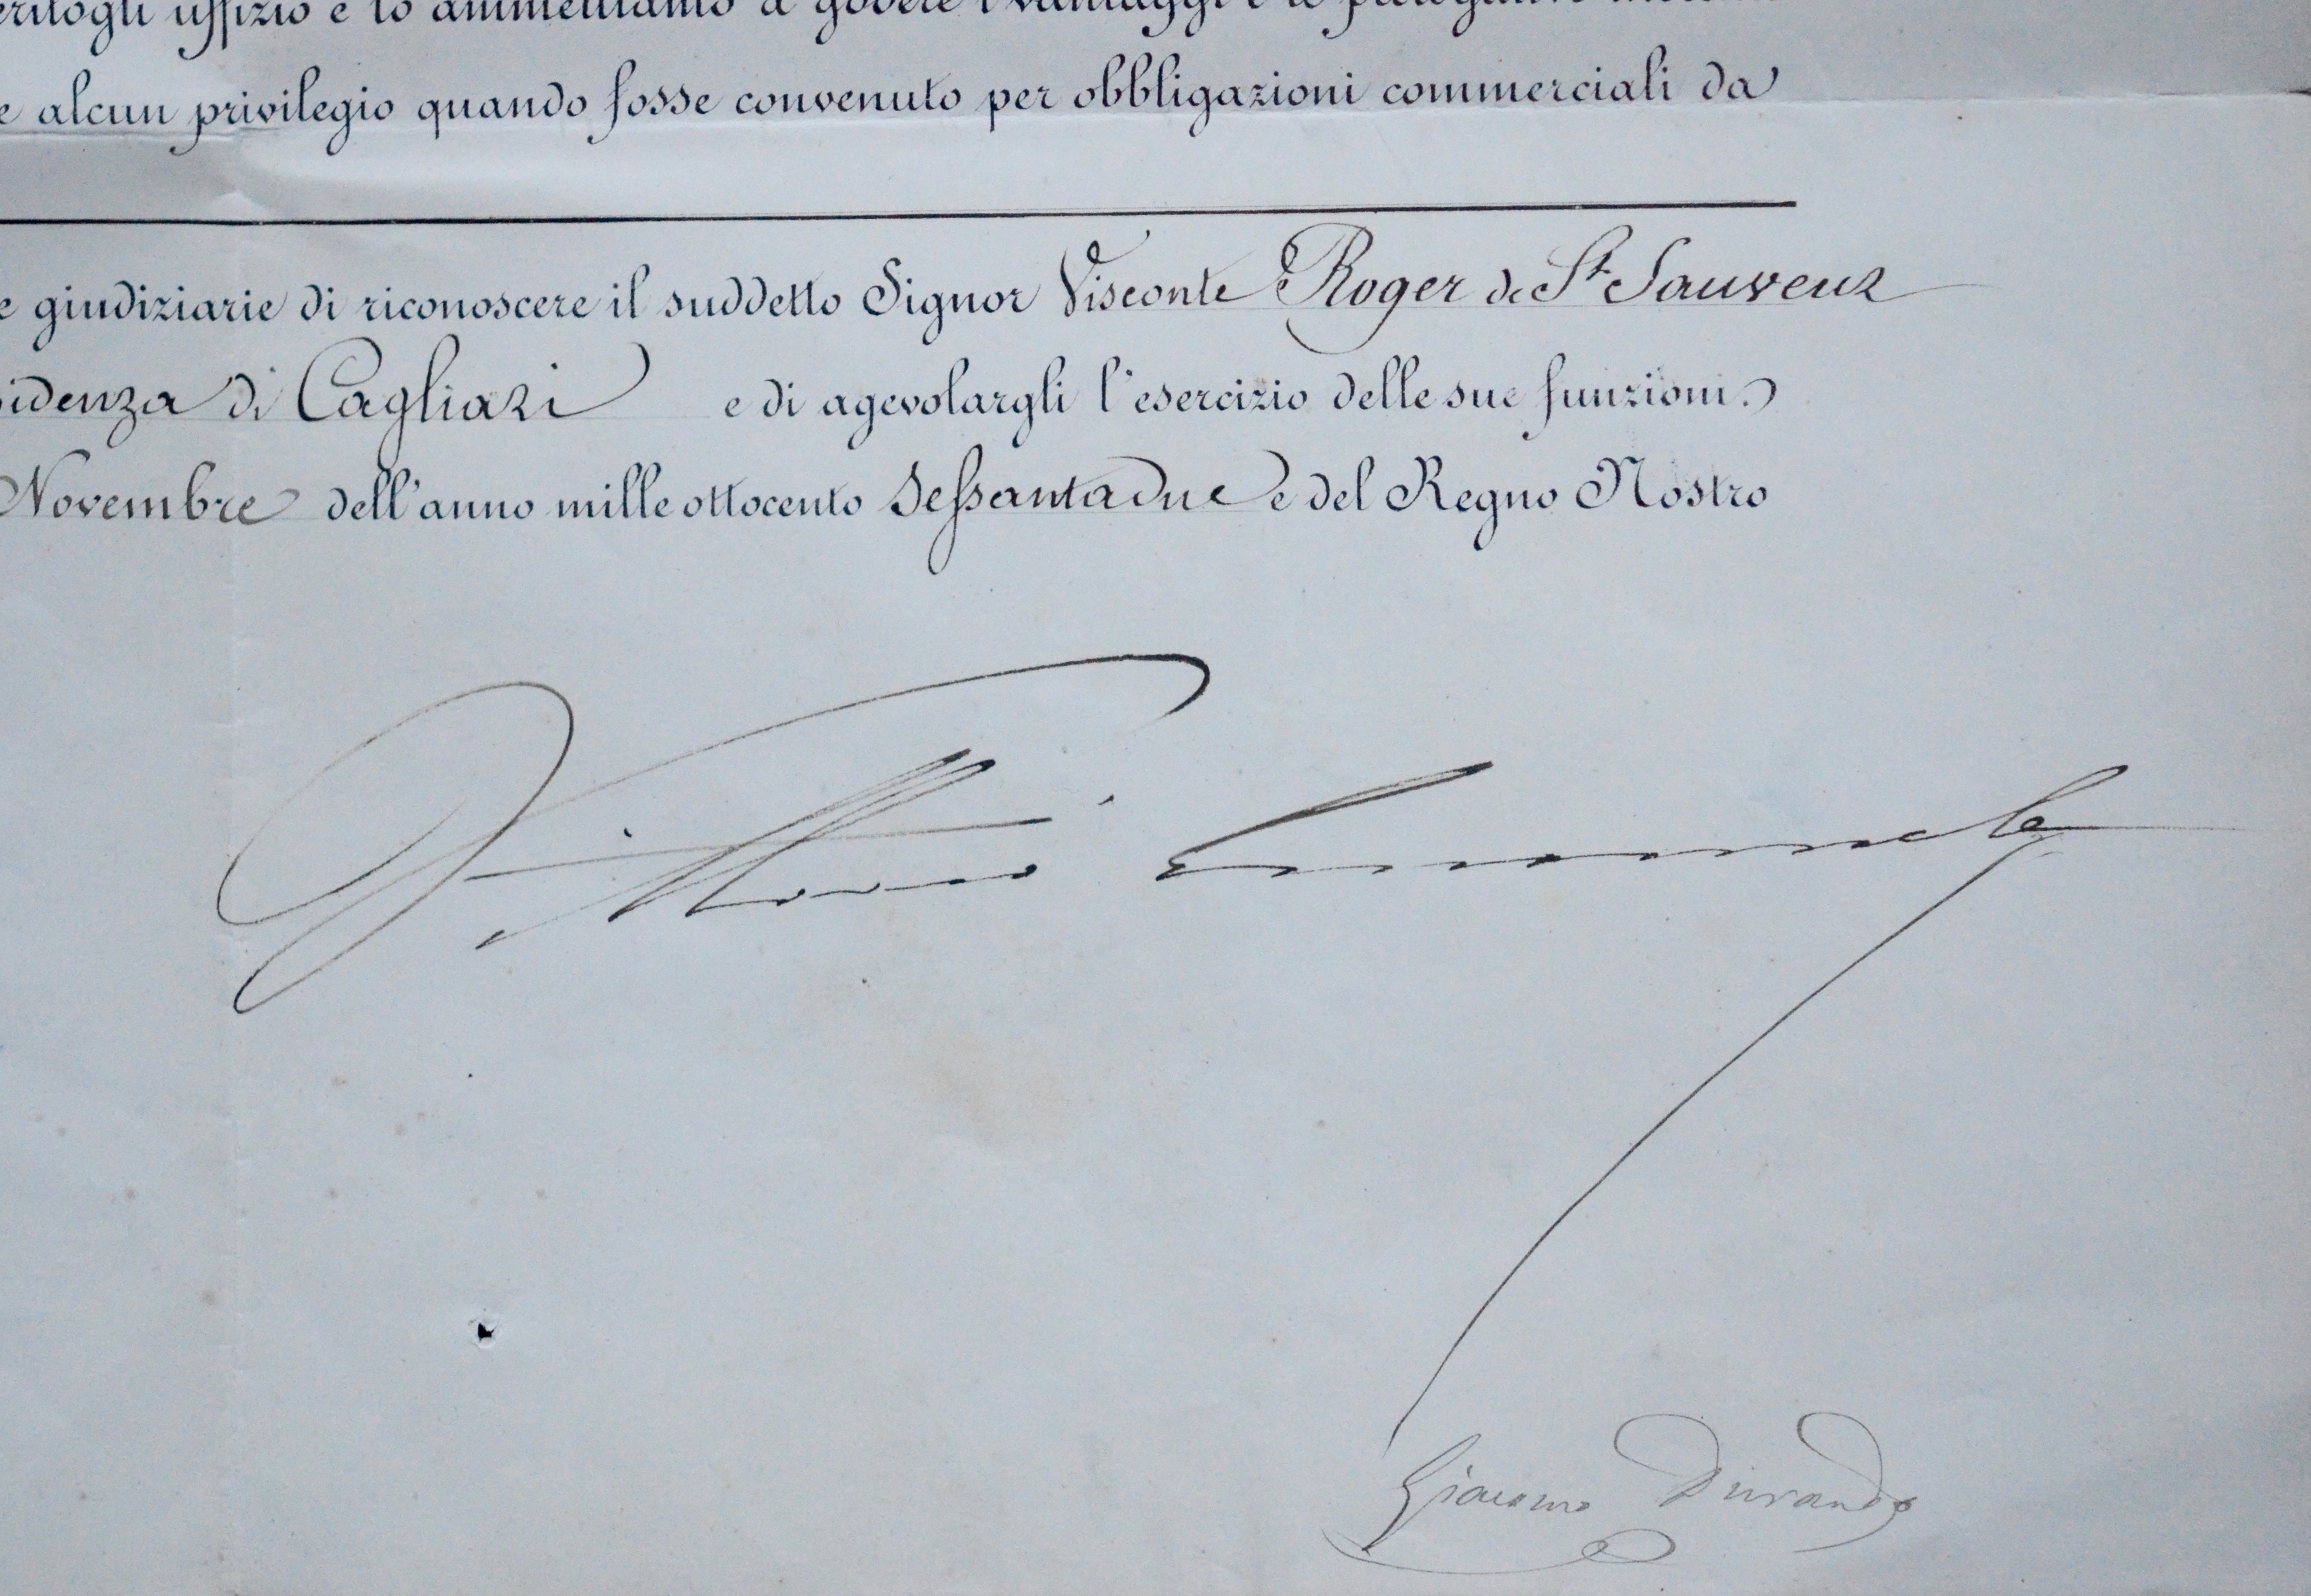 uffizio e lo ammettiamo a godere i vantaggi e le
e alcun privilegio quando fosse convenuto per obbligazioni commerciali da
e giudiziarie di riconoscere il suddetto Signor Visconte Roger de St Sauveur
idenza di Cagliari e di agevolargli l'esercizio delle sue funzioni.
Novembre dell'anno mille ottocento Sessantadue e del Regno Nostro
Vittorio Emanuele
Giacomo Durando